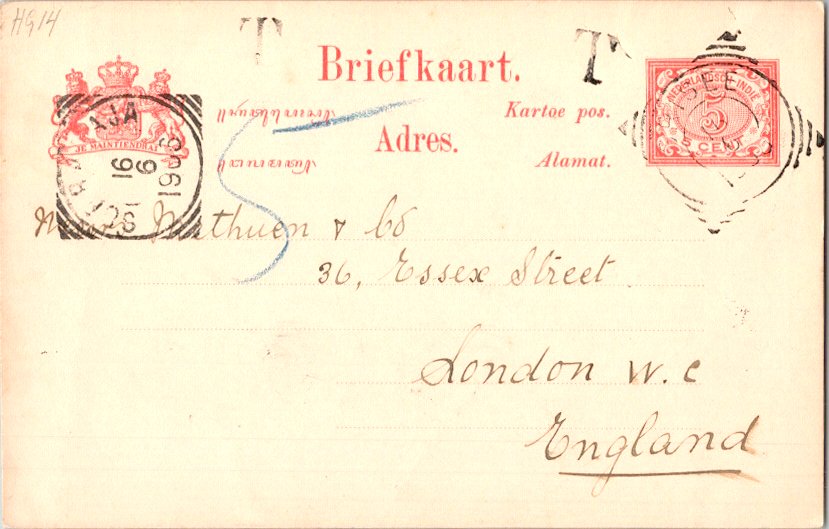 HG14
T
T
Briefkaart.
Kartoe pos.
Adres.
Alamat.
JE MAINTIENDRAI
NEDERLANDSCH-INDIE
5
5 CENT
1905
9
16
5
Methuen & Co
36, Essex Street
London W.C
England